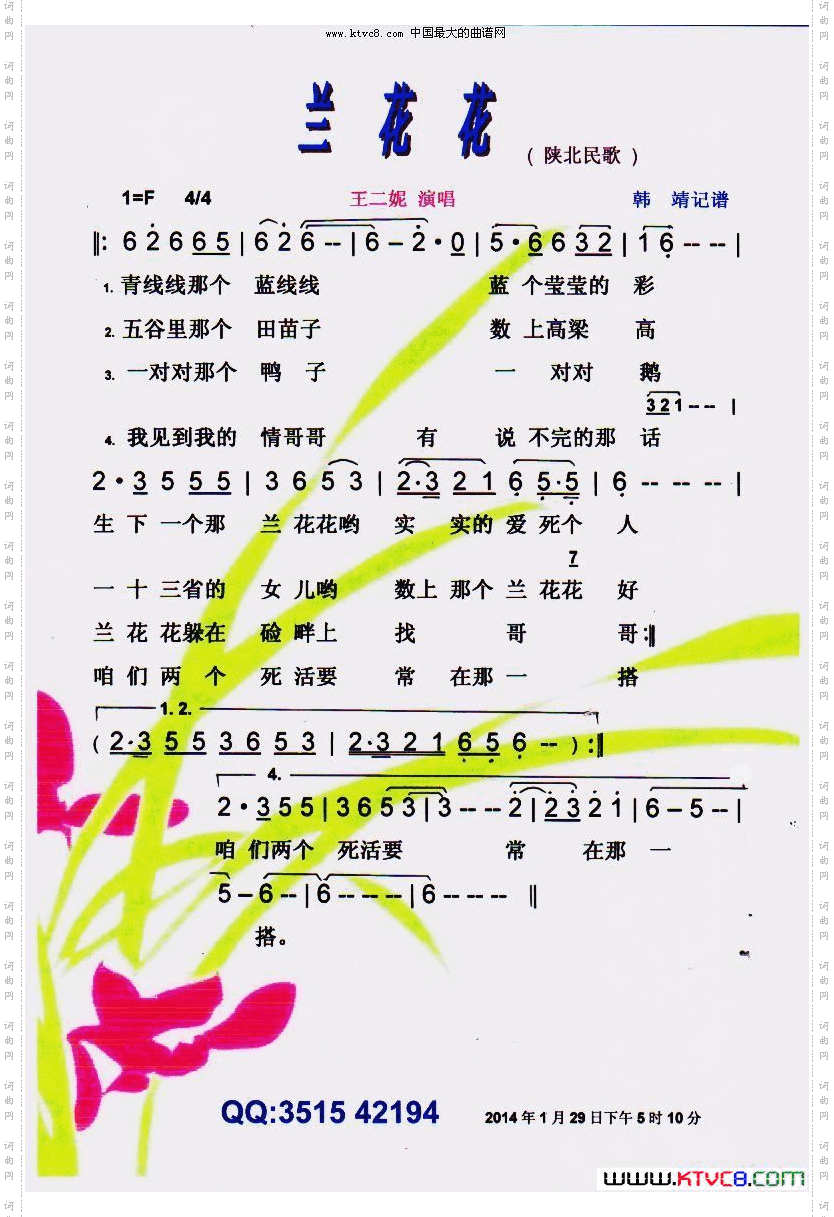 www.ktvc8.com 中国最大的曲谱网
兰花花
（陕北民歌）
1=F 4/4 王二妮 演唱 韩 靖记谱
‖: 6 2̇ 6 6 5 | 6 2̇ 6 -- | 6 – 2̇ · 0 | 5 · 6̣ 6 3 2 | 1 6̣ -- -- |
1. 青线线那个 蓝线线 蓝 个莹莹的 彩
2. 五谷里那个 田苗子 数 上高梁 高
3. 一对对那个 鸭 子 一 对对 鹅
3 2 1 -- -- |
4. 我见到我的 情哥哥 有 说 不完的那 话
2 · 3 5 5 5 | 3 6 5 3 | 2 · 3 2 1 6̣ 5̣ · 5̣ | 6̣ -- -- -- |
生 下 一个那 兰 花花哟 实 实的 爱 死个 人
7
一 十 三省的 女 儿哟 数上 那个 兰 花花 好
兰 花 花躲在 硷 畔上 找 哥 哥:‖
咱 们 两 个 死 活要 常 在那 一 搭
1. 2.
( 2 · 3 5 5 3 6 5 3 | 2 · 3 2 1 6̣ 5̣ 6̣ -- ) :‖
4.
2 · 3 5 5 | 3 6 5 3 | 3 -- -- 2̇ | 2̇ 3̇ 2̇ 1̇ | 6 – 5 -- |
咱 们两个 死活要 常 在那 一
5 – 6 -- | 6 -- -- -- | 6 -- -- -- ‖
搭。
QQ:3515 42194
2014 年 1 月 29 日下午 5 时 10 分
www.KTVC8.com